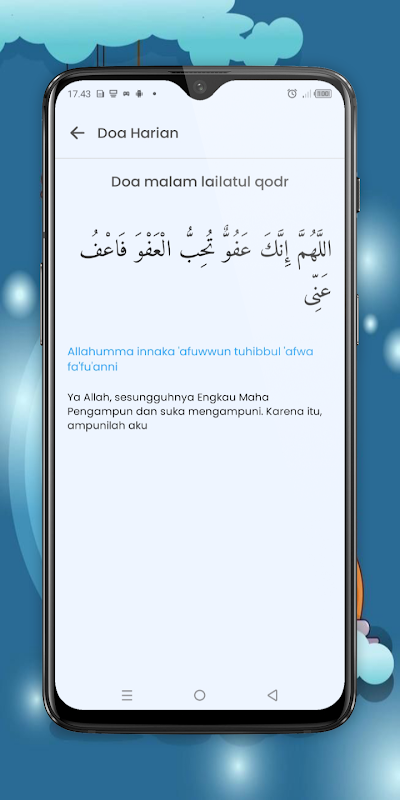 17.43
Doa Harian
Doa malam lailatul qodr
اللَّهُمَّ إِنَّكَ عَفُوٌّ تُحِبُّ الْعَفْوَ فَاعْفُ
عَنِّى
Allahumma innaka 'afuwwun tuhibbul 'afwa
fa'fu'anni
Ya Allah, sesungguhnya Engkau Maha
Pengampun dan suka mengampuni. Karena itu,
ampunilah aku